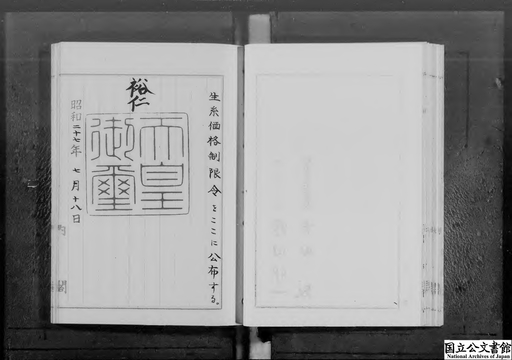 生糸価格制限令をここに公布する。
裕仁
天皇御璽
昭和二十七年七月十八日
内閣
国立公文書館
National Archives of Japan